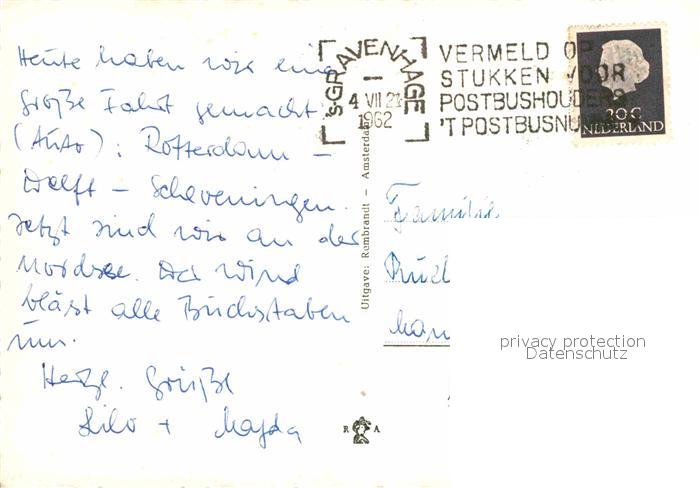 Heute haben wir eine
große Fahrt gemacht
(Auto): Rotterdam –
Delft – Scheveningen.
Jetzt sind wir an der
Nordsee. Der Wind
bläst alle Buchstaben
um.
Herzl. Grüße
Lilo + Magda
's-GRAVENHAGE
4 VII 21
1962
VERMELD OP
STUKKEN VOOR
POSTBUSHOUDERS
'T POSTBUSNUMMER
20 C
NEDERLAND
Uitgave: Rembrandt – Amsterdam
Familie
R A
privacy protection
Datenschutz